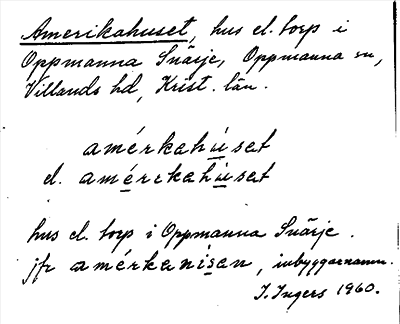 Amerikahuset, hus el. torp i
Oppmanna Snärje, Oppmanna sn,
Villands hd, Krist. län.
amérkahúset
el. amérekahúset
hus el. torp i Oppmanna Snärje.
jfr amérkanisen, inbyggarnamn.
I. Ingers 1960.